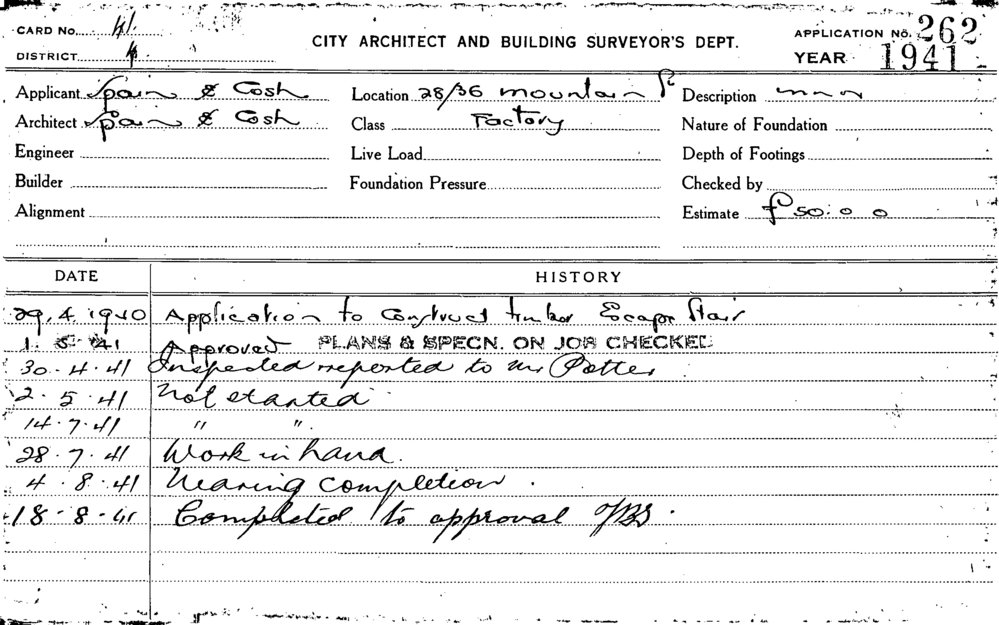 CARD No. 41.
CITY ARCHITECT AND BUILDING SURVEYOR'S DEPT.
APPLICATION No. 262
DISTRICT 4.
YEAR 1941
Applicant Spain & Cosh
Location 28/36 mountain St
Description
Architect Spain & Cosh
Class Factory
Nature of Foundation
Engineer
Live Load
Depth of Footings
Builder
Foundation Pressure
Checked by
Alignment
Estimate £50.0.0
DATE HISTORY
29.4.1940 Application to Construct timber Escape Stair
1.5.41 Approved PLANS & SPECN. ON JOB CHECKED
30.4.41 Inspected reported to Mr Potter
2.5.41 Not started
14.7.41 " ".
28.7.41 Work in hand.
4.8.41 Nearing completion.
18.8.41 Completed to approval